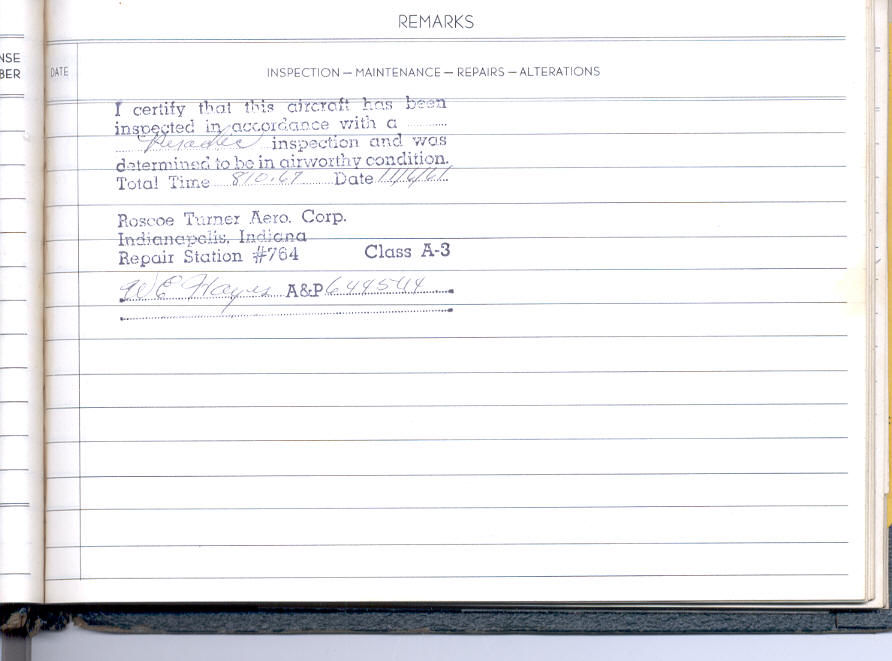 REMARKS
NSE
BER
DATE
INSPECTION — MAINTENANCE — REPAIRS — ALTERATIONS
I certify that this aircraft has been
inspected in accordance with a
Periodic inspection and was
determined to be in airworthy condition.
Total Time 810.67 Date 11/6/61
Roscoe Turner Aero. Corp.
Indianapolis, Indiana
Repair Station #764 Class A-3
WE Hayes A&P 644544